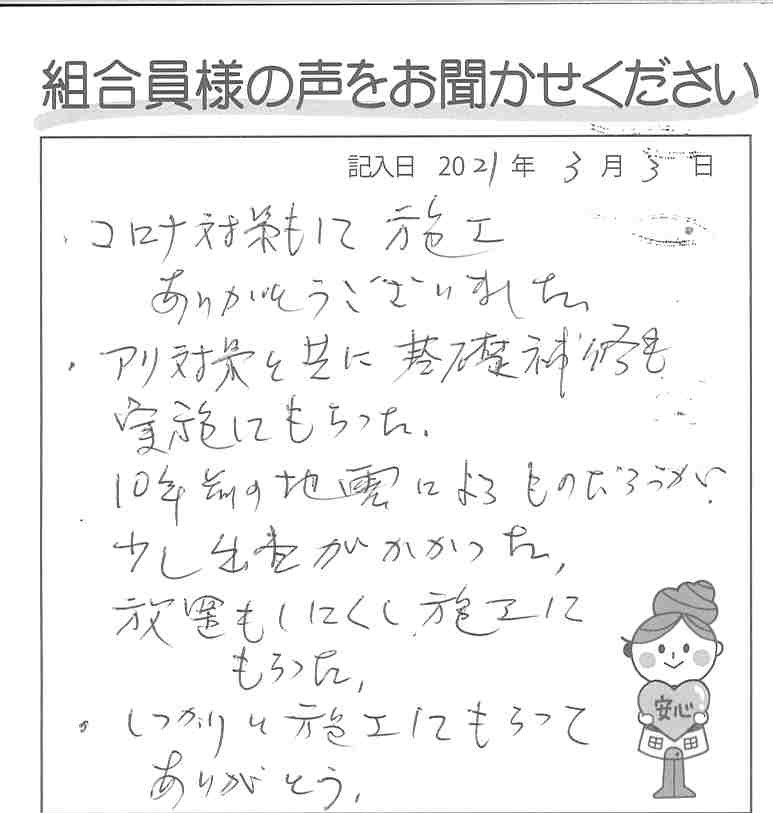 組合員様の声をお聞かせください
記入日 2021年 3月 3日
・コロナ対策もして 施工
ありがとうございました。
・アリ対策と共に 基礎補修も
実施してもらった。
10年前の地震によるものだろうが
少し出費がかかった。
放置もしにくく 施工して
もらった。
・しっかりと施工してもらって
ありがとう。
安心